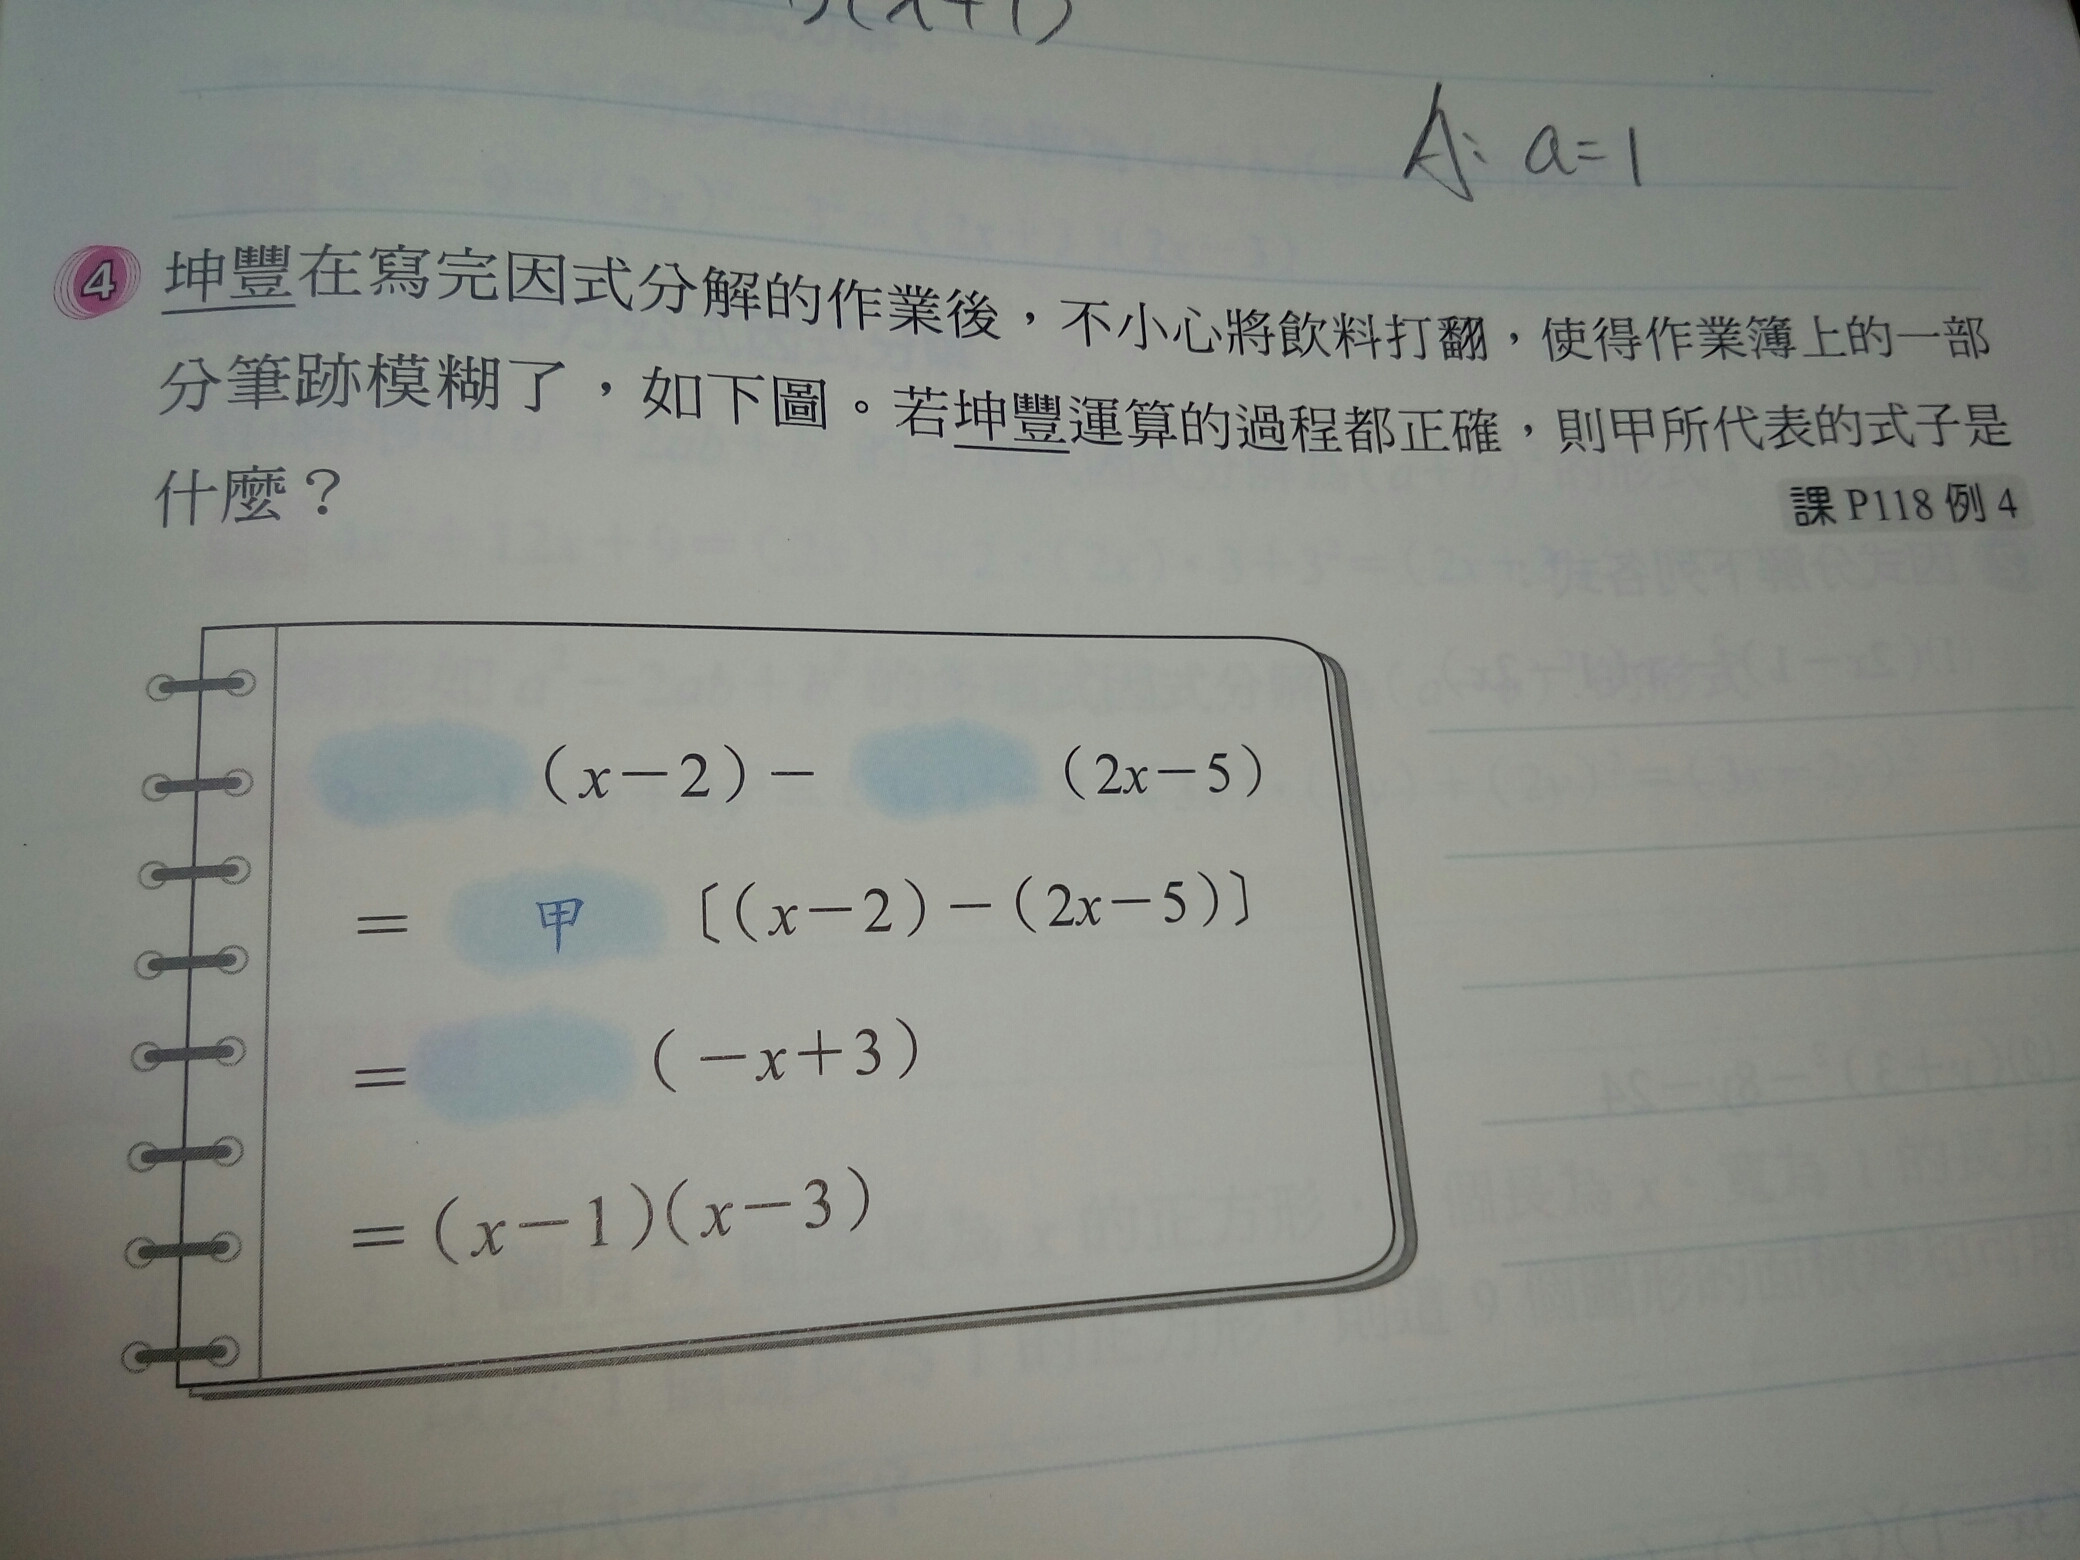 (x+1)
A: a=1
4 坤豐在寫完因式分解的作業後，不小心將飲料打翻，使得作業簿上的一部
分筆跡模糊了，如下圖。若坤豐運算的過程都正確，則甲所代表的式子是
什麼？
課 P118 例 4
(x－2)－ (2x－5)
＝ 甲 〔(x－2)－(2x－5)〕
＝ (－x＋3)
＝(x－1)(x－3)